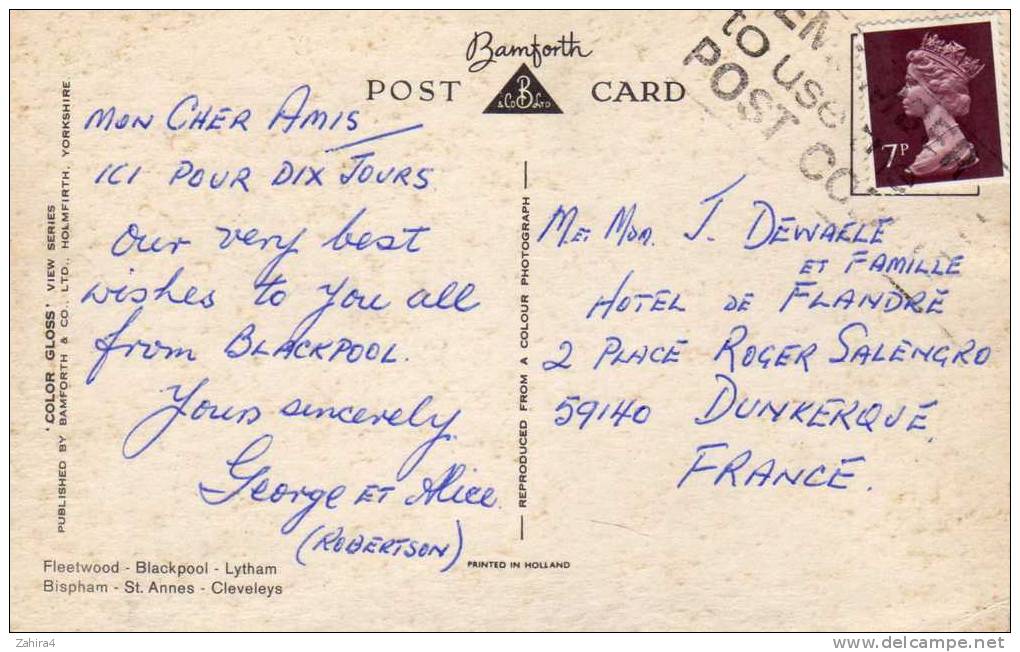 Bamforth
POST CARD
& Co B Ltd
to use
POST CO
7P
MON CHER AMIS
ICI POUR DIX JOURS
Our very best
wishes to you all
from BLACKPOOL.
Yours sincerely
George ET Alice.
(ROBERTSON)
M. ET Mdm. J. DEWAELE
ET FAMILLE
HOTEL DE FLANDRE
2 PLACE ROGER SALENGRO
59140 DUNKERQUE,
FRANCE.
'COLOR GLOSS' VIEW SERIES
PUBLISHED BY BAMFORTH & CO., LTD., HOLMFIRTH, YORKSHIRE
REPRODUCED FROM A COLOUR PHOTOGRAPH
Fleetwood - Blackpool - Lytham
Bispham - St. Annes - Cleveleys
PRINTED IN HOLLAND
Zahira4
delcampe.net